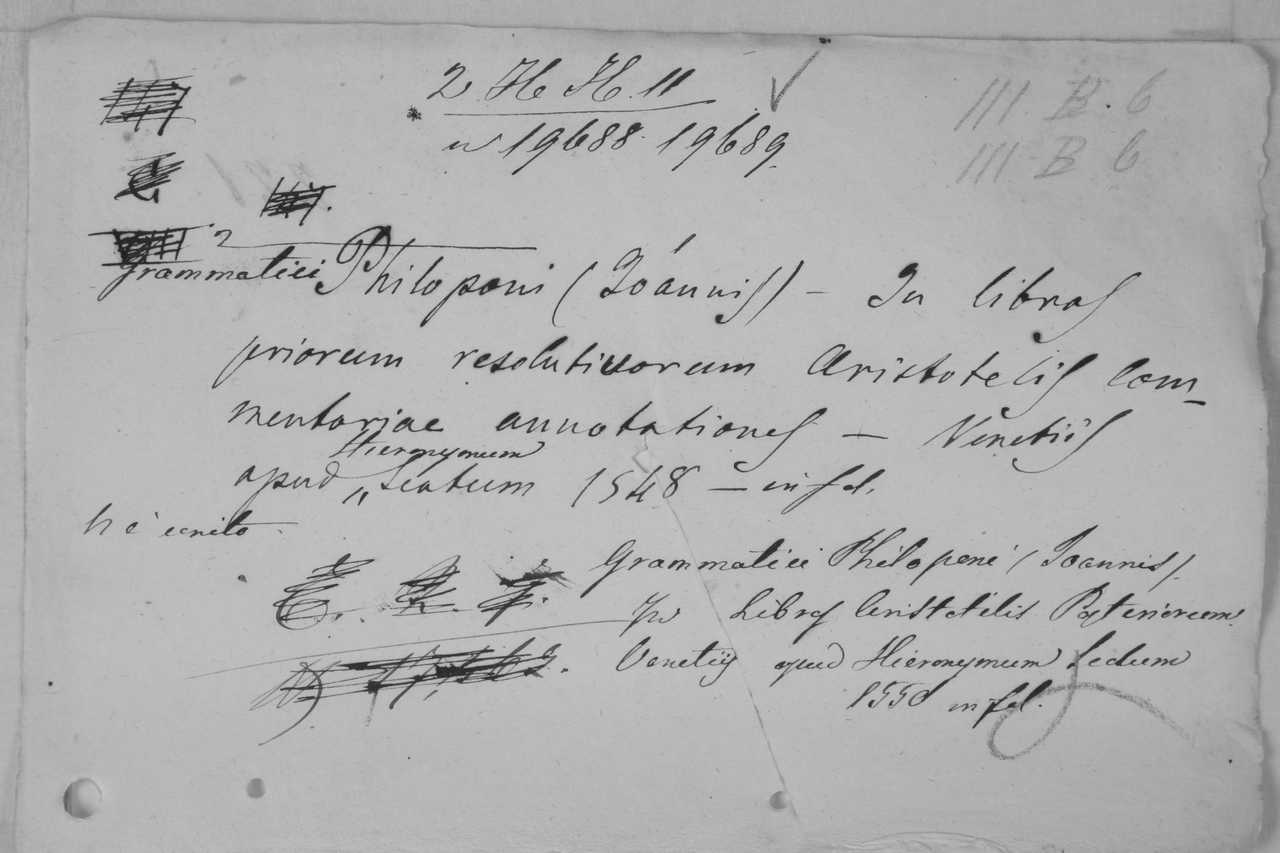 2. H. H. 11
n 19688. 19689.
III. B. 6
III. B 6
Grammatici Philoponi (Ioannis) — In libros
priorum resolutivorum Aristotelis Com-
mentariae annotationes — Venetiis
apud Hieronymum Scotum 1548 — in fol.
Vi è unito
Grammatici Philoponi (Ioannis).
In Libros Aristotelis Posteriorum
Venetijs apud Hieronymum Scotum
1550 in fol.